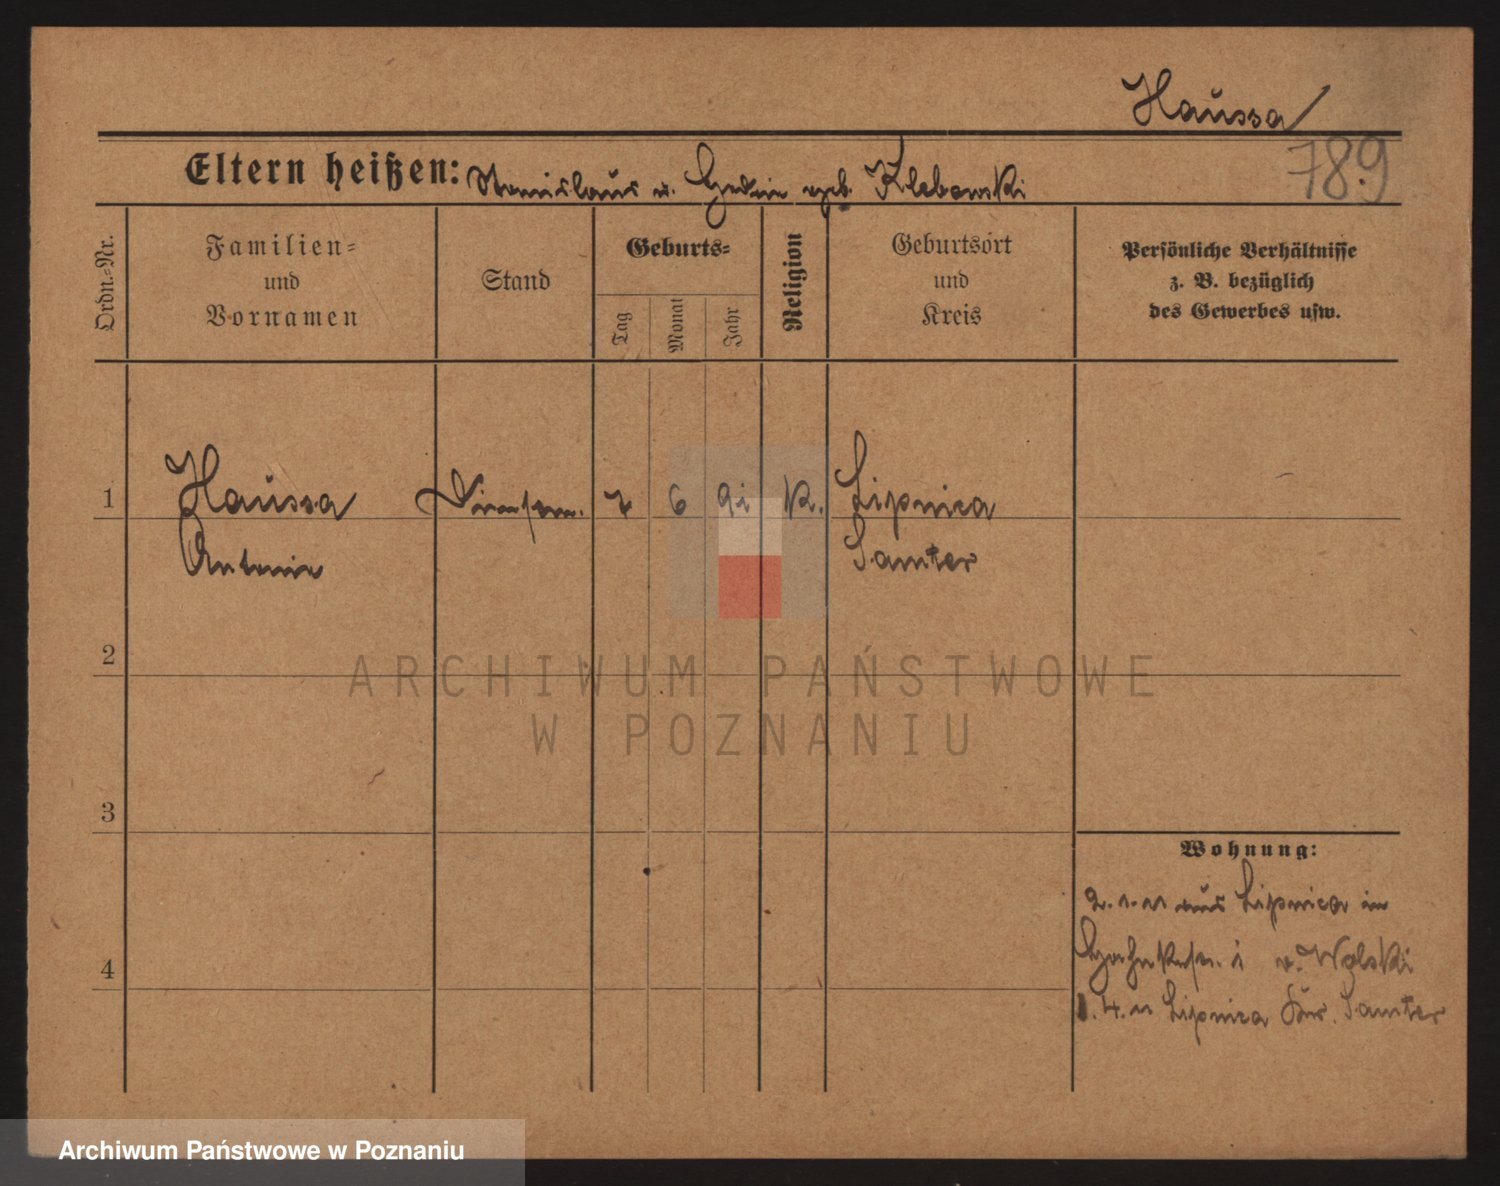 Haussa
789
Eltern heißen: Stanislaus u. geb. Klebowski
Ordn.-Nr.
Familien-
und
Vornamen
Stand
Geburts-
Tag
Monat
Jahr
Religion
Geburtsort
und
Kreis
Persönliche Verhältnisse
z. B. bezüglich
des Gewerbes usw.
1
Haussa
7 6 91 K. Lipnica
Antonie
Samter
2
ARCHIWUM PAŃSTWOWE
W POZNANIU
3
Wohnung:
2.1.11 aus Lipnica in
v. Wolski
4
1.4.11 Lipnica Kr. Samter
Archiwum Państwowe w Poznaniu